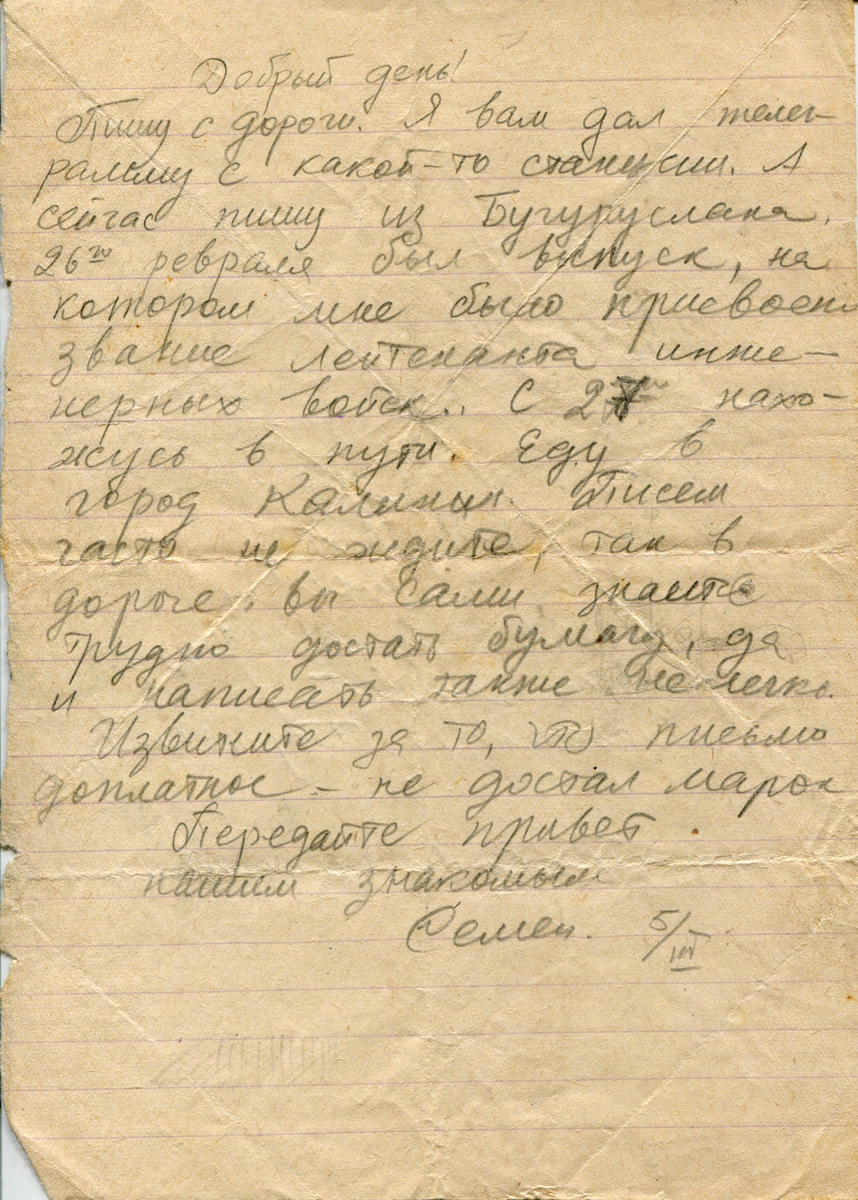 Добрый день!
Пишу с дороги. Я вам дал телег-
рамму с какой-то станции. А
сейчас пишу из Бугуруслана.
26го февраля был выпуск, на
котором мне было присвоено
звание лейтенанта инже-
нерных войск.. С 27го нахо-
жусь в пути. Еду в
город Калинин. Писем
часто не ждите, так в
дороге, вы сами знаите
трудно достать бумагу, да
и написать также не легко.
Извините за то, что письмо
доплатное - не достал марок
Передайте привет
нашим знакомым
Семен. 5/III